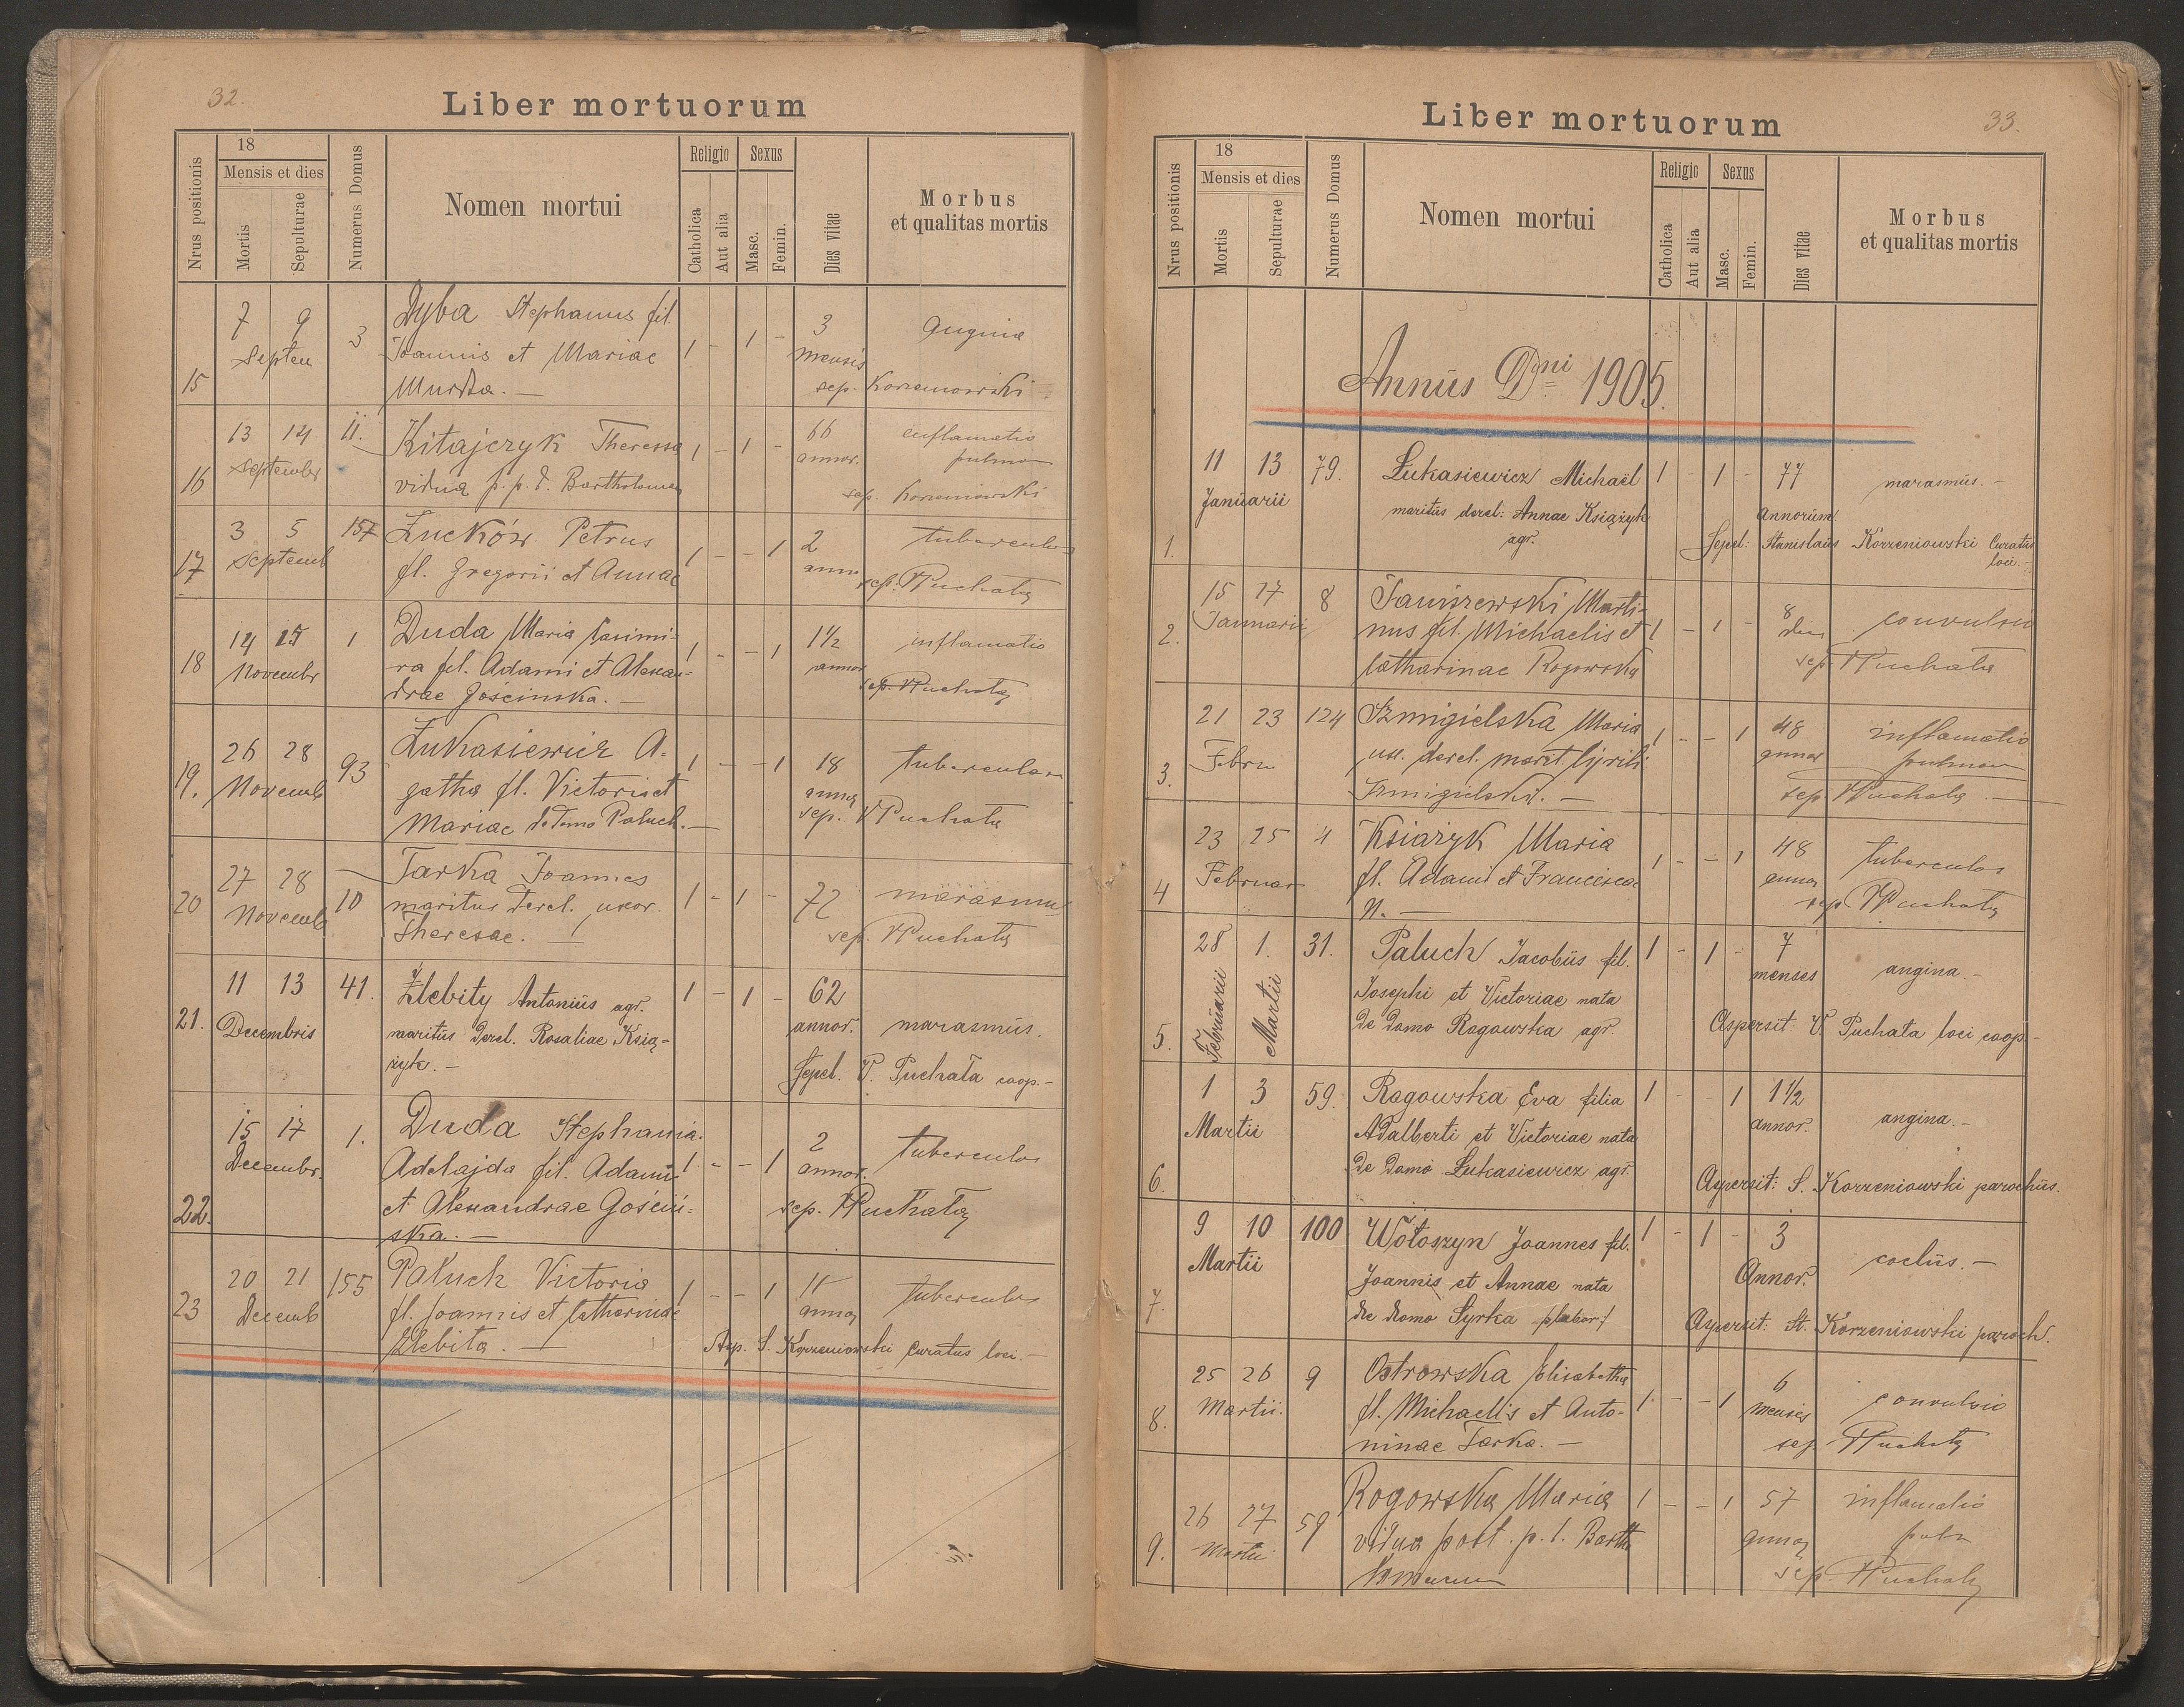 32.
Liber mortuorum
Nrus positionis
18
Mensis et dies
Mortis
Sepulturae
Numerus Domus
Nomen mortui
Religio
Catholica
Aut alia
Sexus
Masc.
Femin.
Dies vitae
Morbus
et qualitas mortis
15
7 9
Septem
3
Dyba Stephanus fil.
Joannis et Mariae
1 - 1 -
3
mensis
angina
sep. Korzeniowski
16
13 14
Septembr
11.
Kitajczyk Theressa
vidua p. p. d. Bartholomaeo
1 - 1 -
66
annor.
enflamatio
pulmon
sep. Korzeniowski
17
3 5
Septemb
157
Żuków Petrus
fl. Gregorii et Annae
1 - - 1
2
anno
tuberculos
sep. VPuchata
18
14 15
Novembr
1
Duda Maria Casimi-
ra fil. Adami et Alexan-
drae Gościnska. —
1 - - 1
1½
annor
inflamatio
sep. VPuchata
19.
26 28
Novemb
93
Łukasiewicz A-
gatha fl. Victorii et
Mariae de domo Paluch. —
1 - - 1
18
annor
tuberculos
sep. VPuchata
20
27 28
Novemb
10
Tarka Joannes
maritus derel. uxor.
Theresae. —
1 - 1 -
72
marasmus
sep. VPuchata
21.
11 13
Decembris
41.
Żlebity Antonius agr.
maritus derel. Rosaliae Ksią-
żyk. -
1 - 1 -
62
annor.
marasmus.
Sepel. V. Puchata coop. -
22.
15 17
Decembr.
1.
Duda Stephania
Adelajda fil. Adami
et Alexandrae Gościń-
ska. —
1 - - 1
2
annor.
tuberculos
sep. VPuchata
23
20 21
Decemb
155
Paluch Victoria
fl. Joannis et Catharinae
Żlebita. —
1 - - 1
11
annor
tuberculos
Asp. S. Korzeniowski Curatus loci. -
33.
Liber mortuorum
Nrus positionis
18
Mensis et dies
Mortis
Sepulturae
Numerus Domus
Nomen mortui
Religio
Catholica
Aut alia
Sexus
Masc.
Femin.
Dies vitae
Morbus
et qualitas mortis
Annus Dni 1905.
1.
11 13
Januarii
79.
Łukasiewicz Michaël
maritus derel: Annae Książyk
agr.
1 - 1 -
77
annorum
marasmus. -
Sepel: Stanislaus Korzeniowski Curatus
loci. -
2.
15 17
Januarii
8
Janiszewski Marti-
nus fil. Michaelis et
Catharinae Rogowska
1 - 1 -
8
dies
convulsio
sep. VPuchata
3.
21 23
Febru
124
Szmigielska Maria
ux. derel. marit Cyrili
Szmigielski. —
1 - - 1
48
annor
inflamatio
pulmon
sep. VPuchata
4
23 25
Februar
4
Książyk Maria
fl. Adami et Francisca
N. —
1 - - 1
48
annor
tuberculos
sep VPuchata
5.
28 1.
Februarii Martii
31.
Paluch Jacobus fil.
Josephi et Victoriae nata
de domo Rogowska agr.
1 - 1 -
7
menses
angina -
Aspersit: V. Puchata loci coop. -
6.
1 3
Martii
59.
Rogowska Eva filia
Adalberti et Victoriae nata
de domo Łukasiewicz agr.
1 - - 1
1½
annor.
angina. -
Aspersit: S. Korzeniowski parochus.
7.
9 10
Martii
100
Wołoszyn Joannes fil.
Joannis et Annae nata
de domo Syrka /labor/
1 - 1 -
3
Annor.
coclus. -
Aspersit: St. Korzeniowski paroch.
8.
25 26
Martii.
9
Ostrowska Elisabetha
fl. Michaelis et Anto-
ninae Tarka. —
1 - - 1
6
menses
convulsio
sep VPuchata
9.
26 27
Martii
59
Rogowska Maria
vidua post. p. d. Barth
1 - - 1
57
annor
inflamatio
pulm
sep. VPuchata